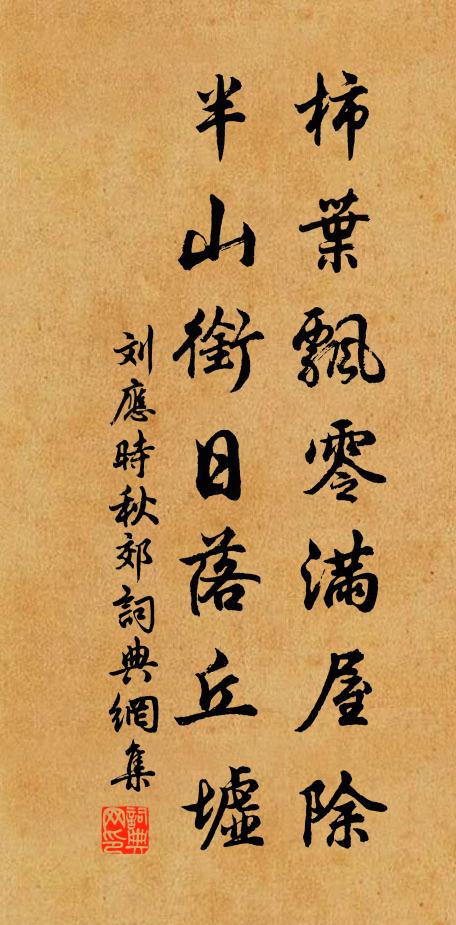 柿葉飄零滿屋除
半山銜日落丘墟
刘應時秋郊詞典網集
詞典网印